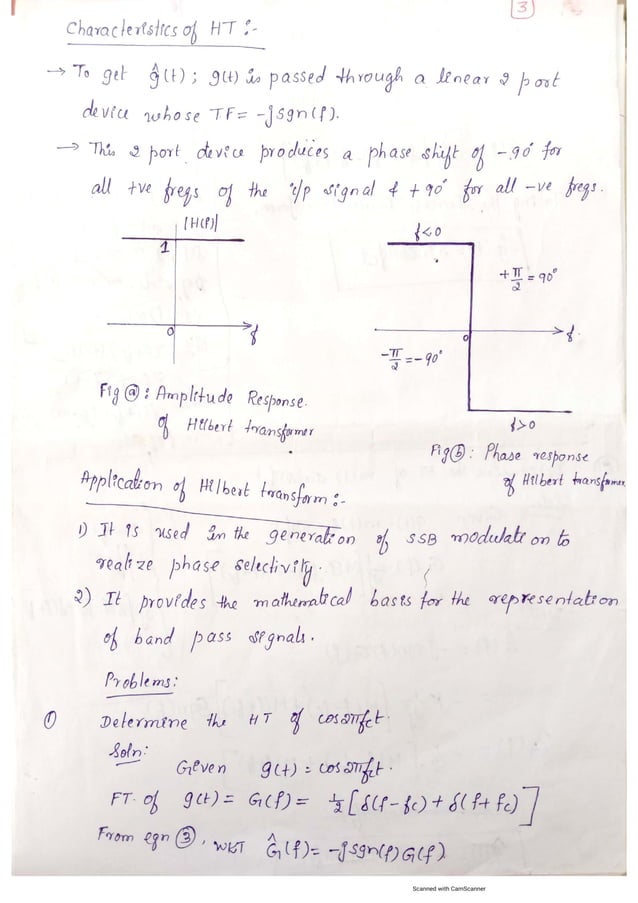 3
Characteristics of HT :-
→ To get ĝ(t) ; g(t) is passed through a linear 2 port
device whose TF = -jsgn(f).
→ This 2 port device produces a phase shift of -90° for
all +ve freqs of the i/p signal & +90° for all -ve freqs.
|H(f)|
1
0
f
Fig ⓐ : Amplitude Response.
of Hilbert transformer
f<0
+π/2 = 90°
0
f
-π/2 = -90°
f>0
Fig ⓑ : Phase response
of Hilbert transformer
Application of Hilbert transform :-
1) It is used in the generation of SSB modulation to
realize phase selectivity.
2) It provides the mathematical basis for the representation
of band pass signals.
Problems :
① Determine the HT of cos2πfct.
Soln:
Given g(t) = cos2πfct.
FT. of g(t) = G(f) = 1/2 [δ(f-fc) + δ(f+fc)]
From eqn ③, WKT Ĝ(f) = -jsgn(f)G(f)
Scanned with CamScanner